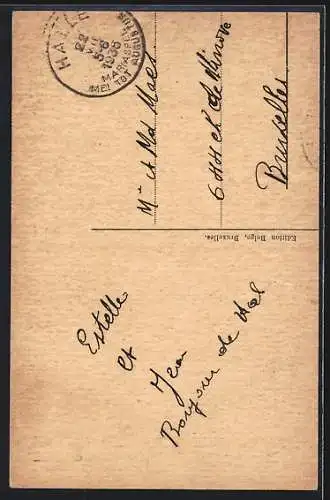 HALLE
22
VII
5-6
1936
MARIASPEL
MEI TOT AUGUSTUS
Mr et Md Maes
6 Ch de Ninove
Bruxelles
Edition Belge, Bruxelles.
Estelle
et
Jean
Bonjour de Hal